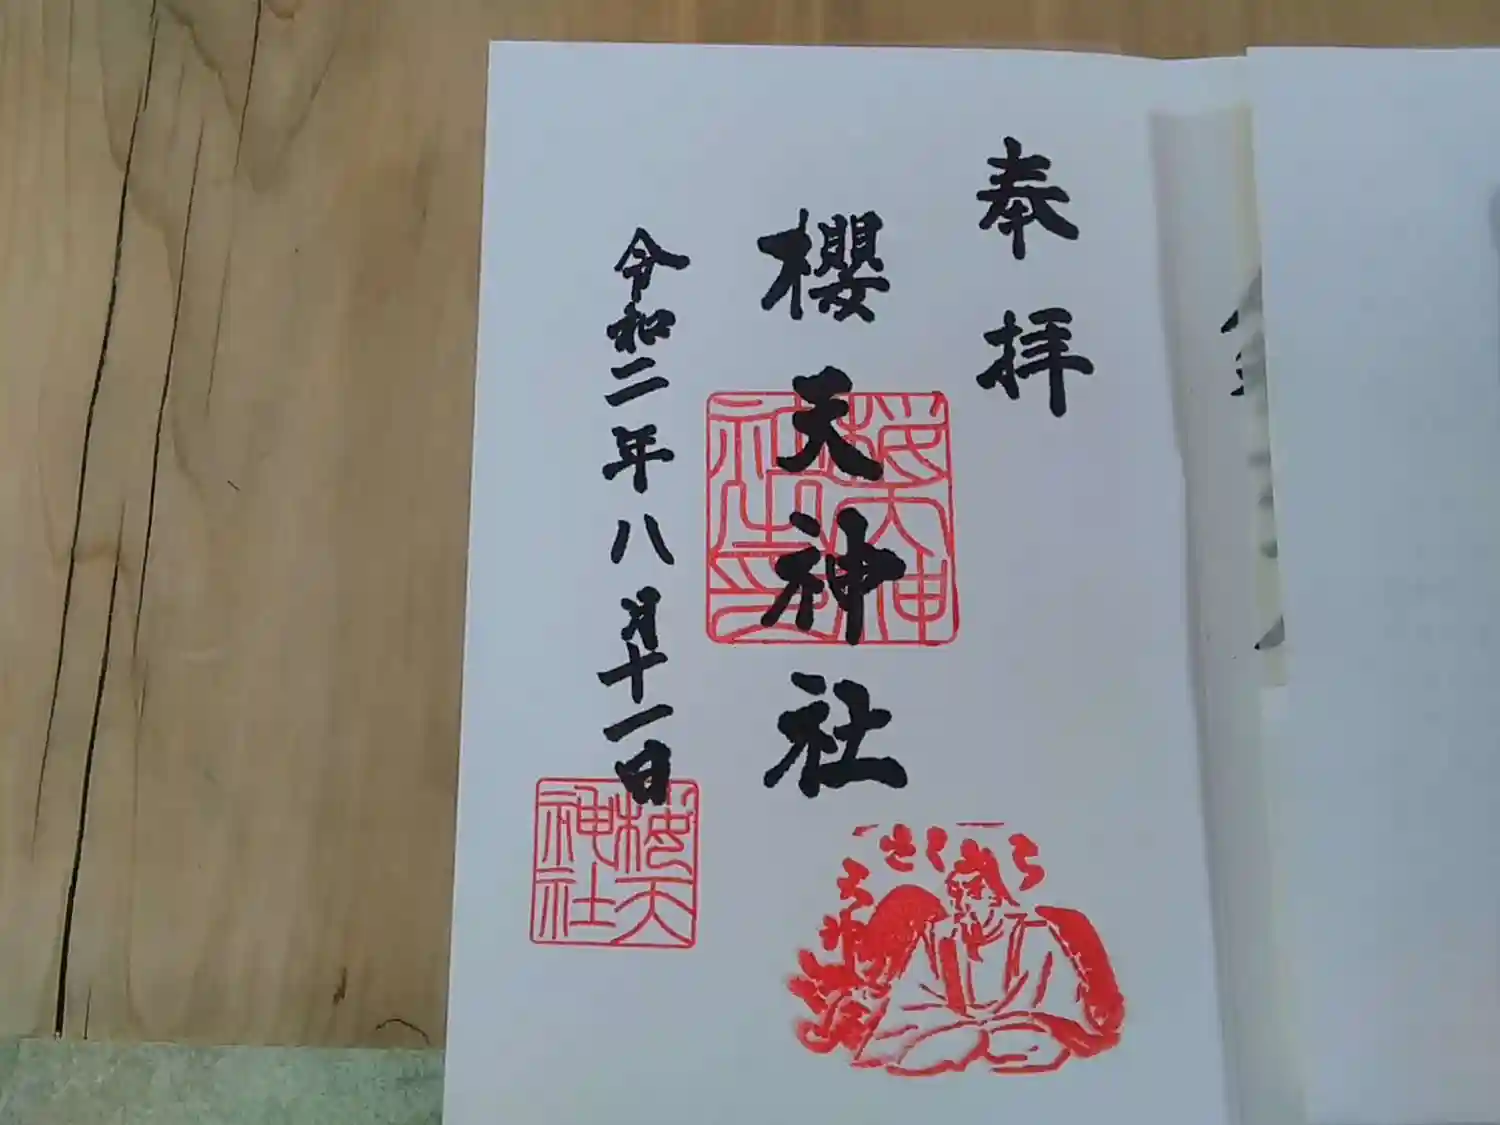 奉拝
櫻天神社
令和二年八月十一日
桜天神社之印
桜天神社
さくら天神